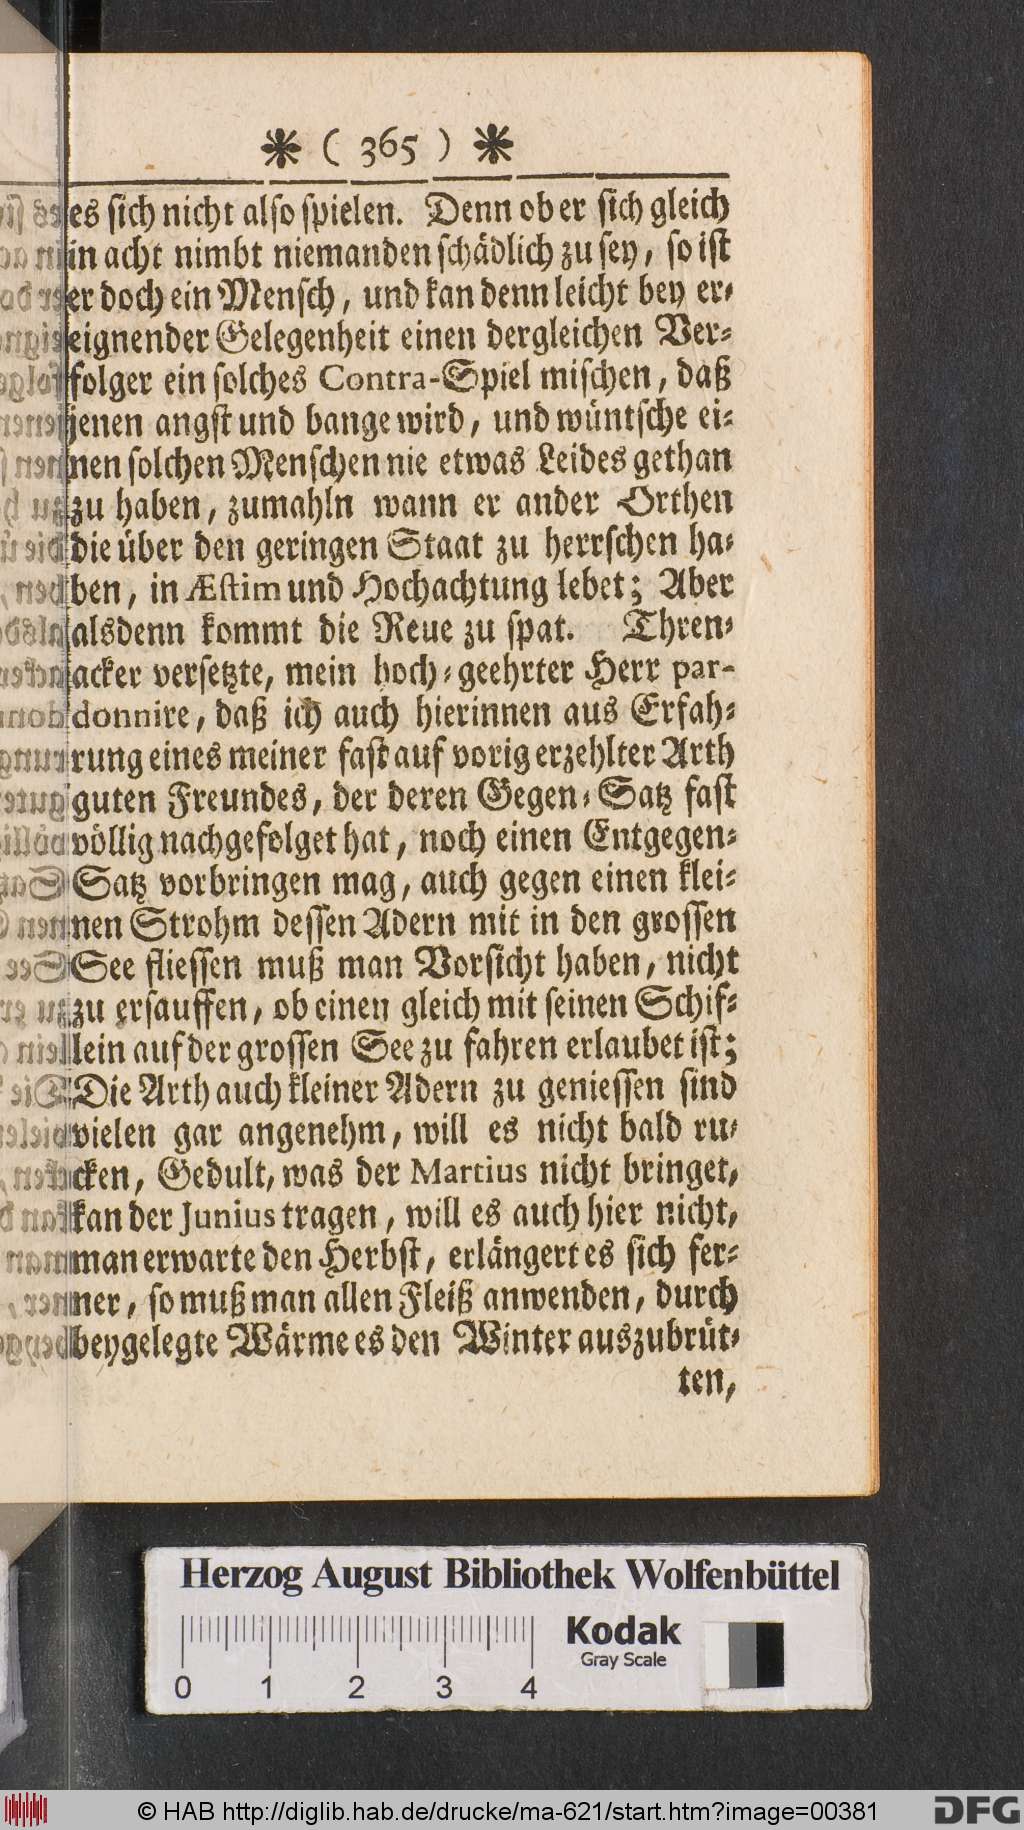 * ( 365 ) *
es sich nicht also spielen. Denn ob er sich gleich
in acht nimbt niemanden schädlich zu sey, so ist
er doch ein Mensch, und kan denn leicht bey er-
eignender Gelegenheit einen dergleichen Ver-
folger ein solches Contra-Spiel mischen, daß
jenen angst und bange wird, und wüntsche ei-
nen solchen Menschen nie etwas Leides gethan
zu haben, zumahln wann er ander Orthen
die über den geringen Staat zu herrschen ha-
ben, in Æstim und Hochachtung lebet; Aber
alsdenn kommt die Reue zu spat. Thren-
acker versetzte, mein hoch-geehrter Herr par-
donnire, daß ich auch hierinnen aus Erfah-
rung eines meiner fast auf vorig erzehlter Arth
guten Freundes, der deren Gegen-Satz fast
völlig nachgefolget hat, noch einen Entgegen-
Satz vorbringen mag, auch gegen einen klei-
nen Strohm dessen Adern mit in den grossen
See fliessen muß man Vorsicht haben, nicht
zu ersauffen, ob einen gleich mit seinen Schif-
lein auf der grossen See zu fahren erlaubet ist;
Die Arth auch kleiner Adern zu geniessen sind
vielen gar angenehm, will es nicht bald ru-
cken, Gedult, was der Martius nicht bringet,
kan der Junius tragen, will es auch hier nicht,
man erwarte den Herbst, erlängert es sich fer-
ner, so muß man allen Fleiß anwenden, durch
beygelegte Wärme es den Winter auszubrüt-
ten,
Herzog August Bibliothek Wolfenbüttel
Kodak
Gray Scale
0 1 2 3 4
© HAB http://diglib.hab.de/drucke/ma-621/start.htm?image=00381
DFG